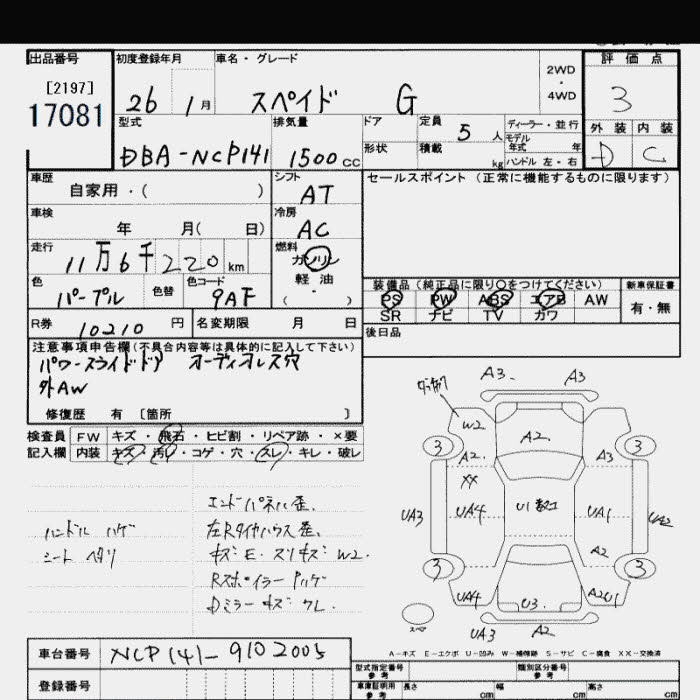 出品番号
[2197]
17081
初度登録年月
26 1月
車名・グレード
スペイド G
2WD
・
4WD
評価点
3
外装 内装
D C
型式
DBA-NCP141
排気量
1500cc
ドア
形状
定員 5 人
積載 kg
ディーラー・並行
モデル
年式 年
ハンドル 左・右
車歴
自家用・( )
シフト
AT
セールスポイント(正常に機能するものに限ります)
車検
年 月( 日)
冷房
AC
走行
11万6千220km
燃料
ガソリン
軽油
( ・ )
色
パープル
色替
色コード
9AF
装備品(純正品に限り○をつけてください)
PS PW ABS エアB AW
SR ナビ TV カワ
新車保証書
有・無
R券 10210 円
名変期限 月 日
後日品
注意事項申告欄(不具合内容等は具体的に記入して下さい)
パワースライドドア オーディオレス穴
外AW
修復歴 有 [箇所 ]
検査員
記入欄
FW キズ・飛石・ヒビ割・リペア跡・×要
内装 キズ・汚レ・コゲ・穴・スレ・キレ・破レ
ハンドル ハゲ
シート ヘタリ
エンドパネル歪.
左Rタイヤハウス歪.
キズ E. スリキズ W2.
Rスポイラー ハゲ
Dミラー キズ ワレ.
A3. A3
W2
A2.
A2. A3
XX
UA3 UA4 UA1 UA2
A2
UA4 U3. A2U1
UA3 A2
3 3
3 3
スペア
A-キズ E-エクボ U-凹み W-補修跡 S-サビ C-腐食 XX-交換済
車台番号 NCP141-9102005
登録番号
型式指定番号
参考
類別区分番号
参考
車庫証明用
参考
長さ cm
幅 cm
高さ cm